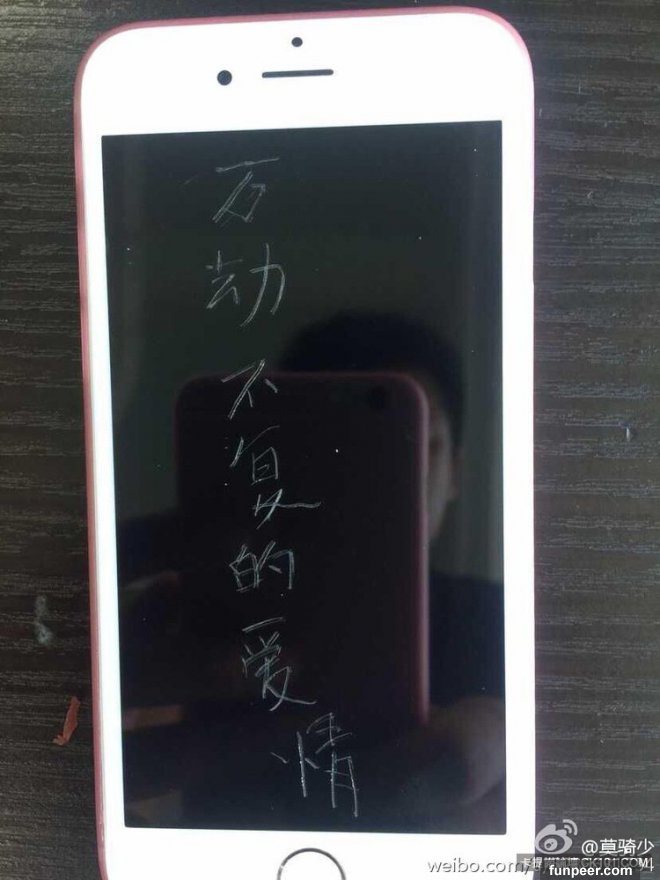 万劫不复的爱情
@莫骑少
weibo.com/
funpeer.com